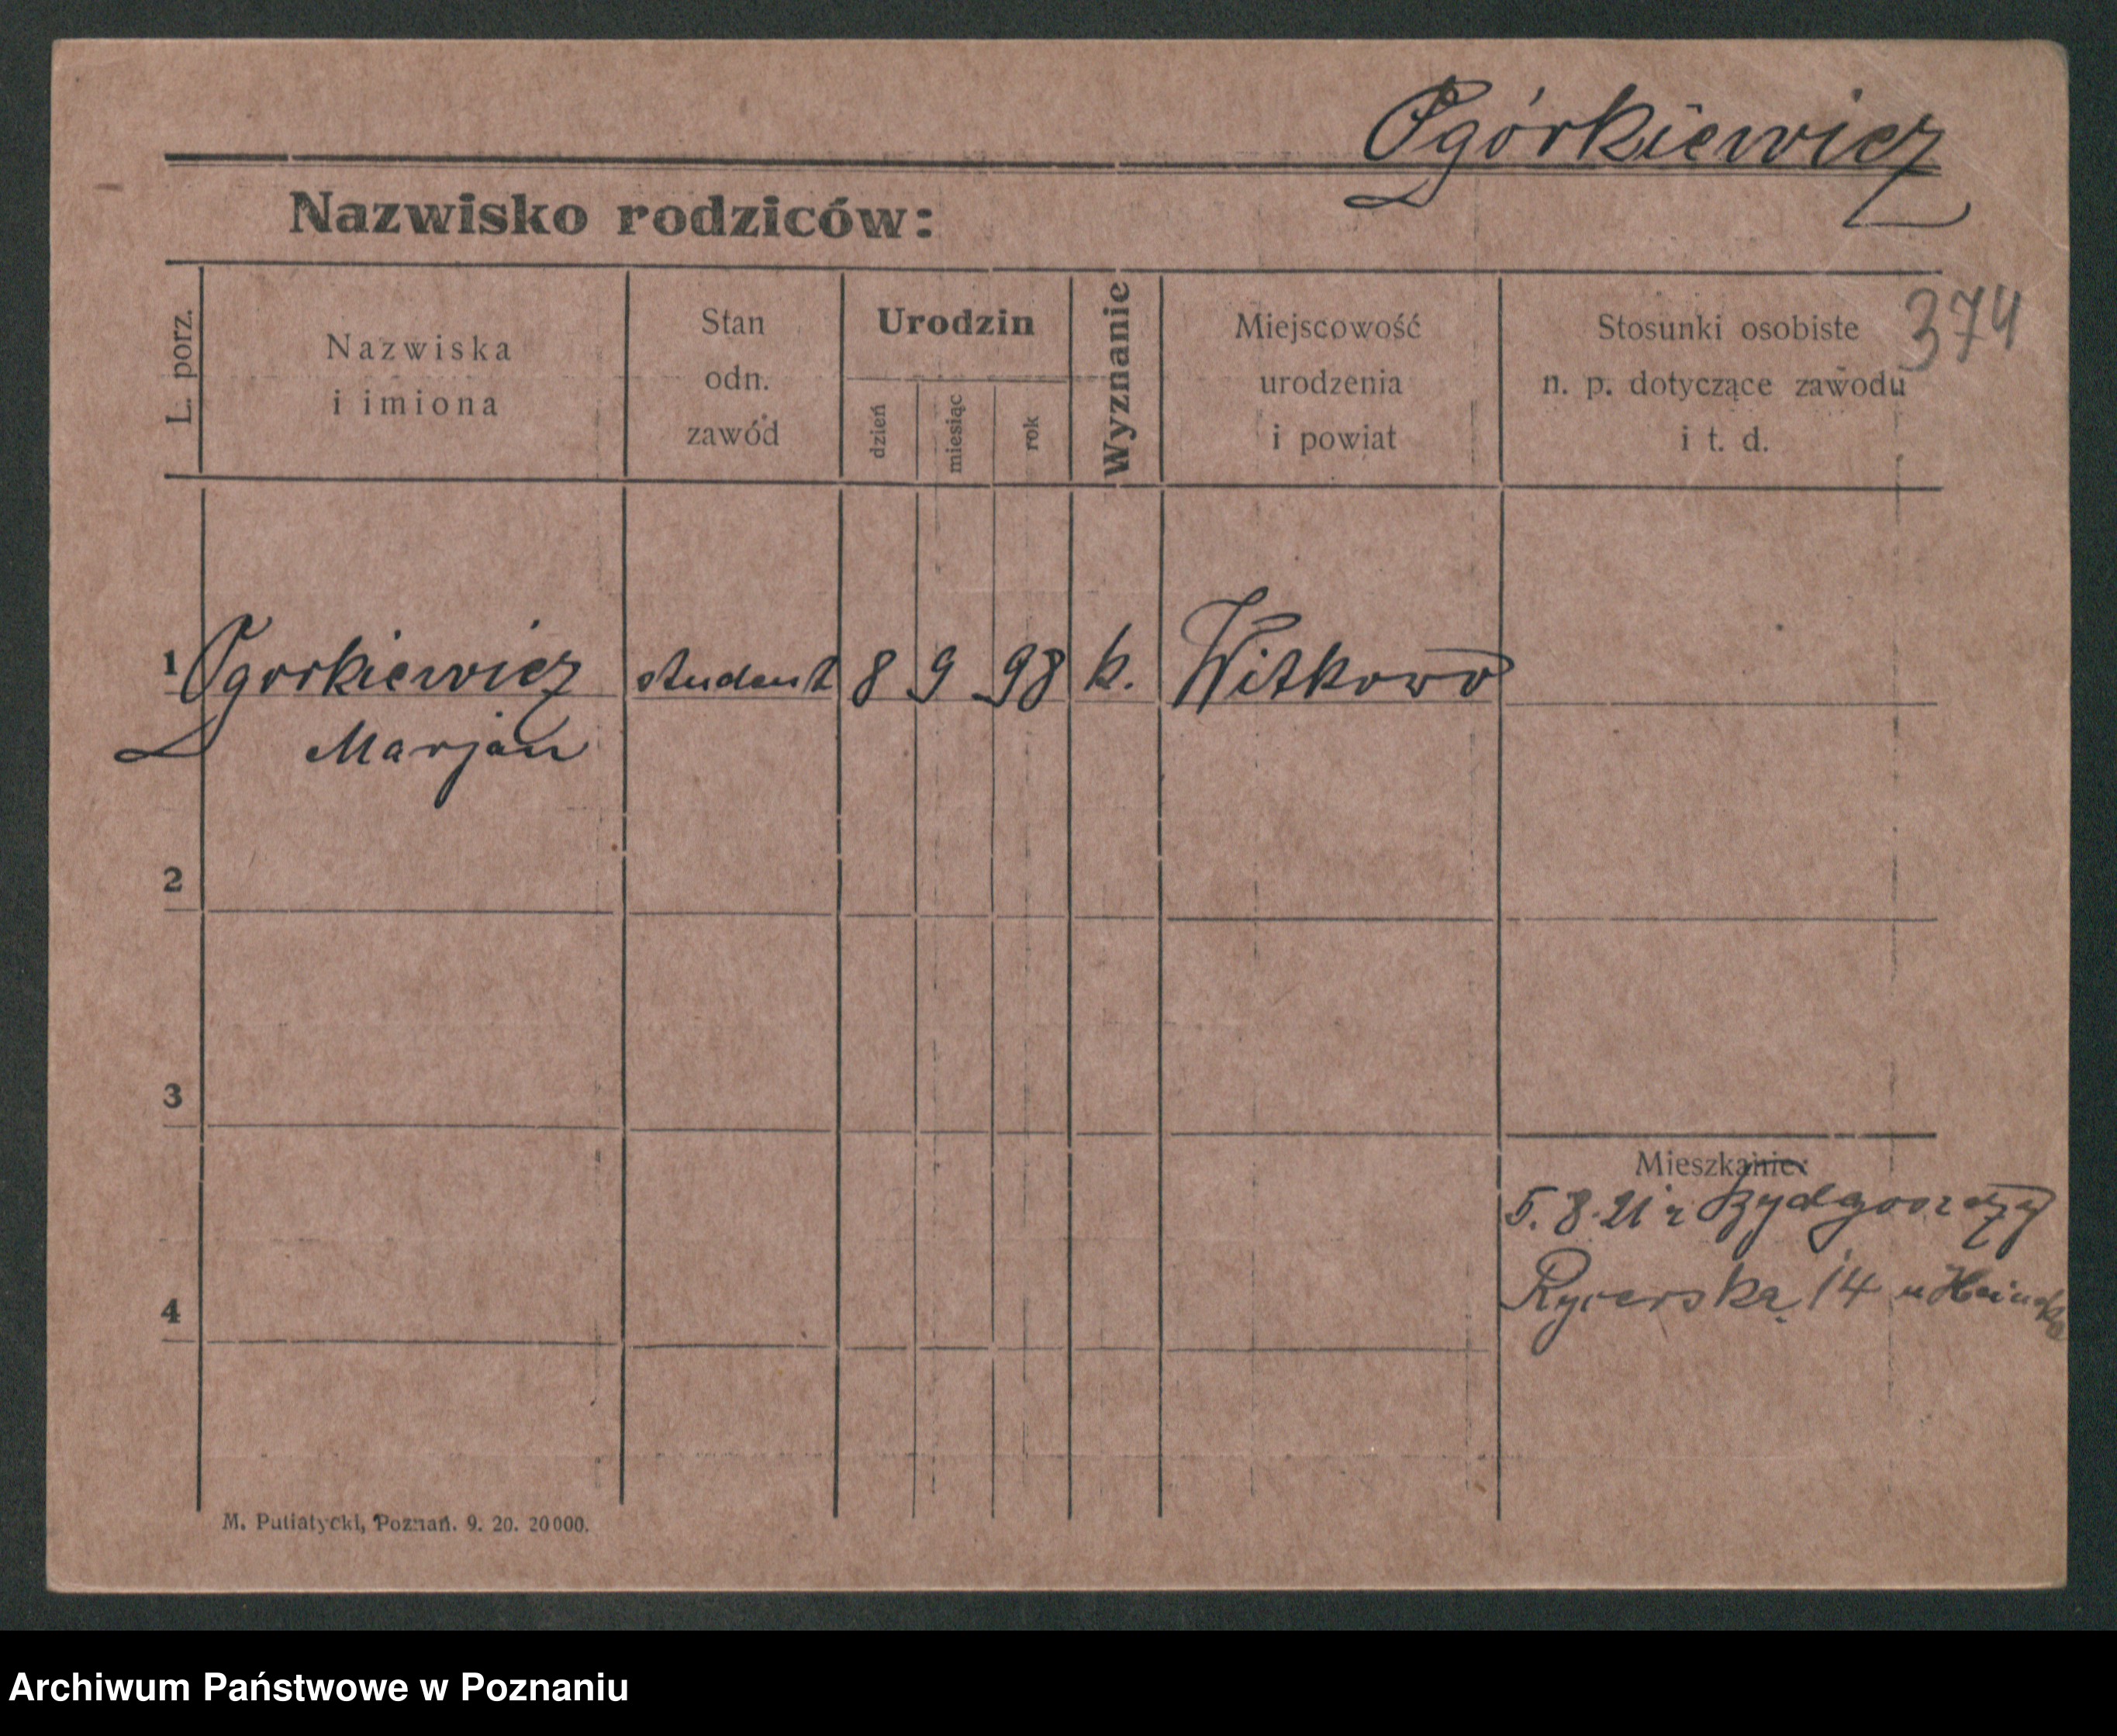 Ogórkiewicz
Nazwisko rodziców:
374
L. porz.
Nazwiska
i imiona
Stan
odn.
zawód
Urodzin
dzień
miesiąc
rok
Wyznanie
Miejscowość
urodzenia
i powiat
Stosunki osobiste
n. p. dotyczące zawodu
i t. d.
1 Ogorkiewicz student 8 9 98 k. Witkowo
Marjan
2
3
Mieszkanie:
5. 8. 21 z Bydgoszczy
4
Rycerska 14 u
M. Putiatycki, Poznań. 9. 20. 20000.
Archiwum Państwowe w Poznaniu